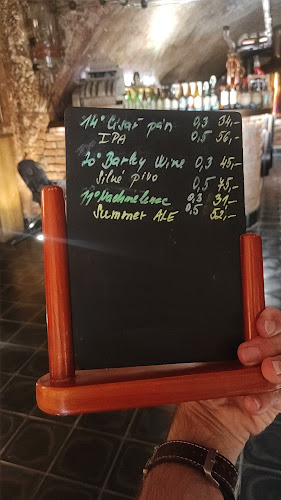 14° Císař pán 0,3 34,-
IPA 0,5 56,-
20° Barley Wine 0,3 45,-
Silné pivo 0,5 75,-
11° Nachmelenec 0,3 31,-
Summer ALE 0,5 52,-